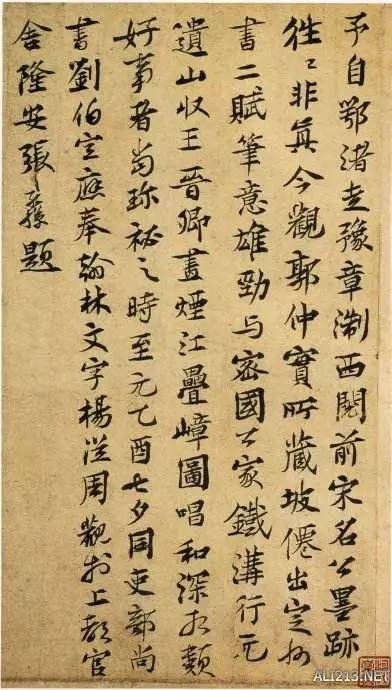 予自鄂渚走豫章淛西閱前宋名公墨跡
徃々非真今觀郭仲實所藏坡僊出定州
書二賦筆意雄勁与密國公家鐵溝行元
遺山収王晉卿畫煙江疊嶂圖唱和深相類
好事者尚珎祕之時至元乙酉七夕同吏部尚
書劉伯宣應奉翰林文字楊從周觀於上都官
舍隆安張孔孫題
ALI213.NET